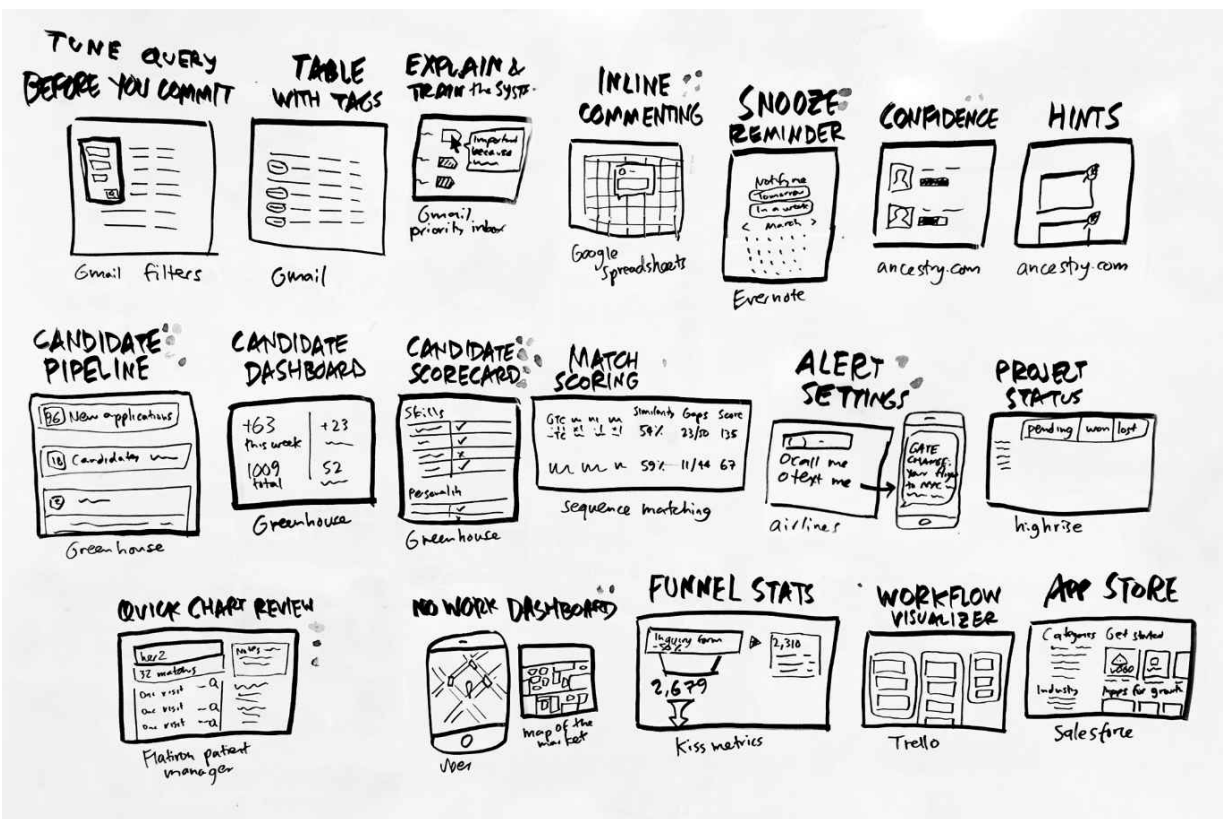 TUNE QUERY
BEFORE YOU COMMIT
Gmail filters
TABLE
WITH TAGS
Gmail
EXPLAIN &
TRAIN the SYST.
Important
because
Gmail
priority inbox
INLINE
COMMENTING
Google
spreadsheets
SNOOZE
REMINDER
Notify me
Tomorrow
In a week
< March >
Evernote
CONFIDENCE
ancestry.com
HINTS
ancestry.com
CANDIDATE
PIPELINE
96 New applications
18 Candidates
Greenhouse
CANDIDATE
DASHBOARD
+63
this week
+23
1009
total
52
Greenhouse
CANDIDATE
SCORECARD
Skills
Personality
Greenhouse
MATCH
SCORING
Similarity Gaps Score
54% 23/50 135
59% 11/44 67
sequence matching
ALERT
SETTINGS
call me
text me
airlines
GATE
CHANGE:
Your flight
to NYC
PROJECT
STATUS
pending won lost
highrise
QUICK CHART REVIEW
her2
32 matches
One visit
One visit
One visit
Notes
Flatiron patient
manager
NO WORK DASHBOARD
uber
map of the
market
FUNNEL STATS
Inquiry form
-50%
2,310
2,679
Kiss metrics
WORKFLOW
VISUALIZER
Trello
APP STORE
Categories Get started
Industry Apps for growth
Salesforce